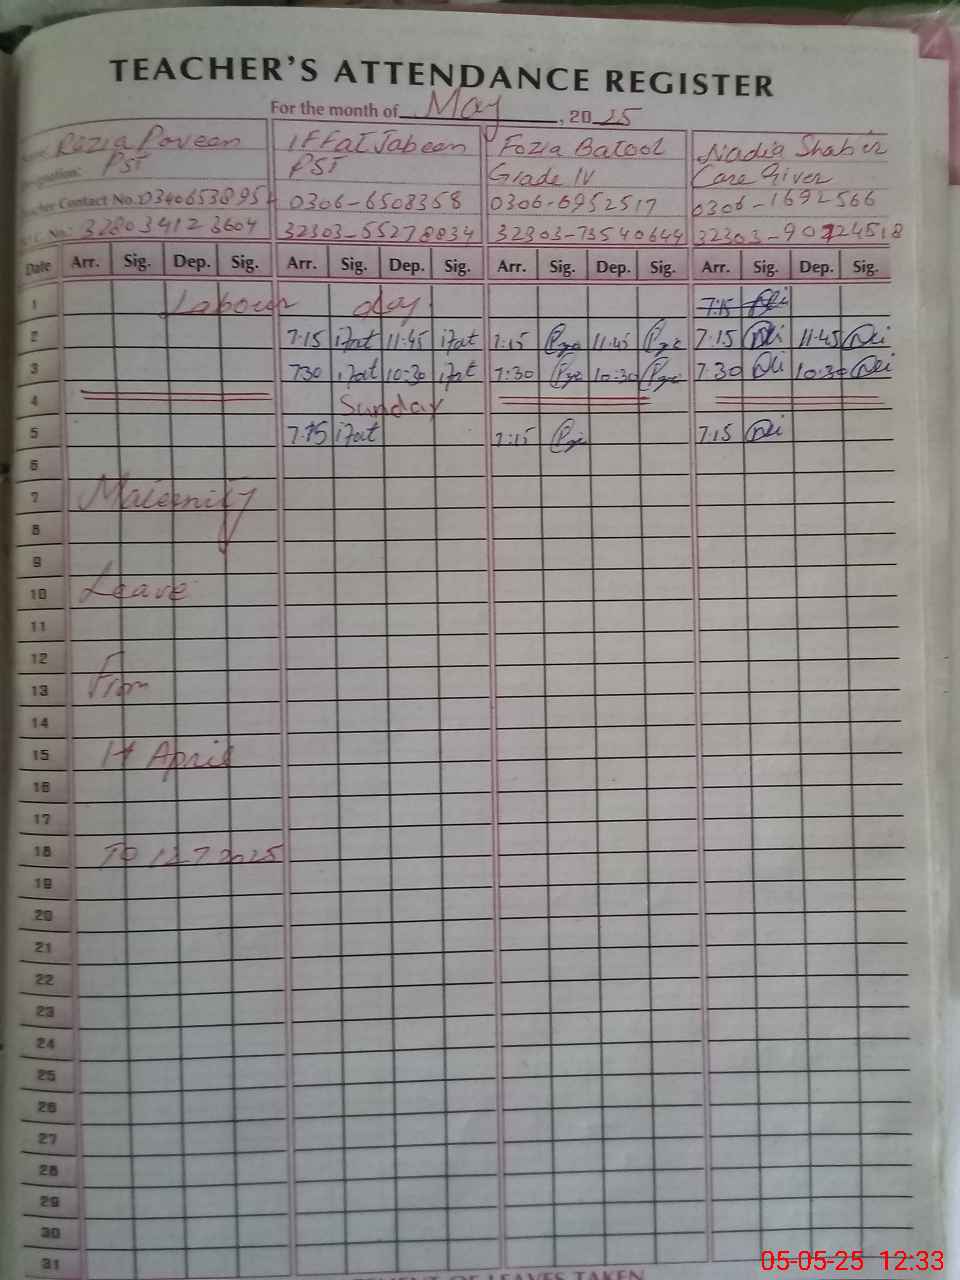 TEACHER'S ATTENDANCE REGISTER
For the month of May, 2025
Razia Parveen IFFat Jabeen Fozia Batool Nadia Shabir
PST PST Grade IV Care Giver
Contact No. 0306-6508358 0306-6952517 0306-1692566
3280334123604 32303-55278834 32303-73540649 32303-90724518
Date Arr. Sig. Dep. Sig. Arr. Sig. Dep. Sig. Arr. Sig. Dep. Sig. Arr. Sig. Dep. Sig.
1 Labour day 7:15
2 7:15 ifat 11:45 ifat 7:15 11:45 7:15 11:45
3 7:30 ifat 10:30 ifat 7:30 10:30 7:30 10:30
4 Sunday
5 7:15 ifat 7:15 7:15
6
7 Maternity
8
9
10 Leave
11
12
13 From
14
15 14 April
16
17
18 TO 12 7 2025
19
20
21
22
23
24
25
26
27
28
29
30
31
OF LEAVES TAKEN
05-05-25 12:33